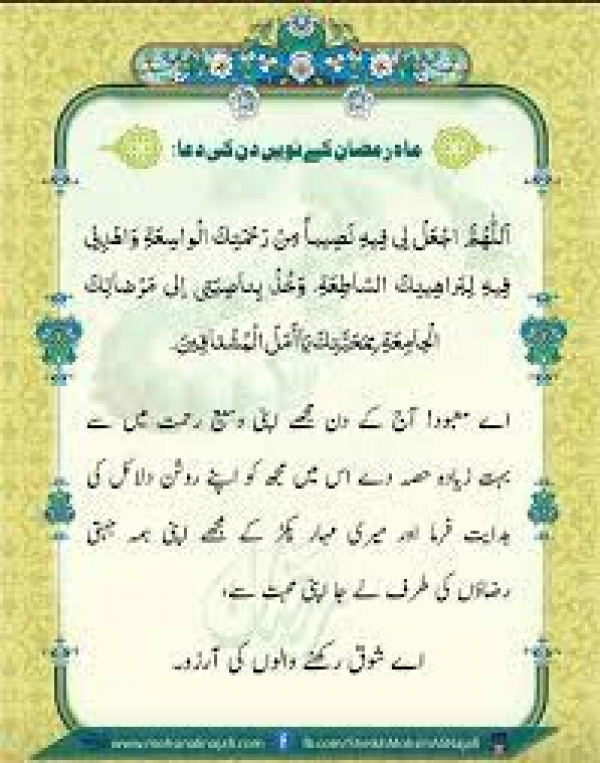 ماہ رمضان کے نویں دن کی دعا:
اَللّٰهُمَّ اجْعَلْ لِي فِيهِ نَصِيباً مِنْ رَحْمَتِكَ الْوَاسِعَةِ وَاهْدِنِي
فِيهِ لِبَرَاهِينِكَ السَّاطِعَةِ، وَخُذْ بِنَاصِيَتِي إِلَى مَرْضَاتِكَ
الْجَامِعَةِ بِمَحَبَّتِكَ يَا أَمَلَ الْمُشْتَاقِينَ.
اے معبود! آج کے دن مجھے اپنی وسیع رحمت میں سے
بہت زیادہ حصہ دے اس میں مجھ کو اپنے روشن دلائل کی
ہدایت فرما اور میری مہار پکڑ کے مجھے اپنی ہمہ جہتی
رضاؤں کی طرف لے جا اپنی محبت سے،
اے شوق رکھنے والوں کی آرزو۔